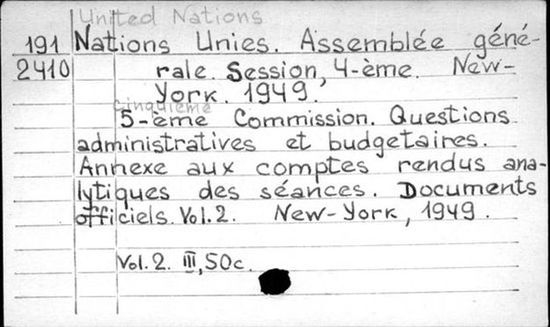 United Nations
191 Nations Unies. Assemblée géné-
2410 rale. Session, 4-ème. New-
York. 1949.
cinquième
5-ème Commission. Questions
administratives et budgetaires.
Annexe aux comptes rendus ana-
lytiques des séances. Documents
officiels. Vol. 2. New-York, 1949.
Vol. 2. III, 50c.